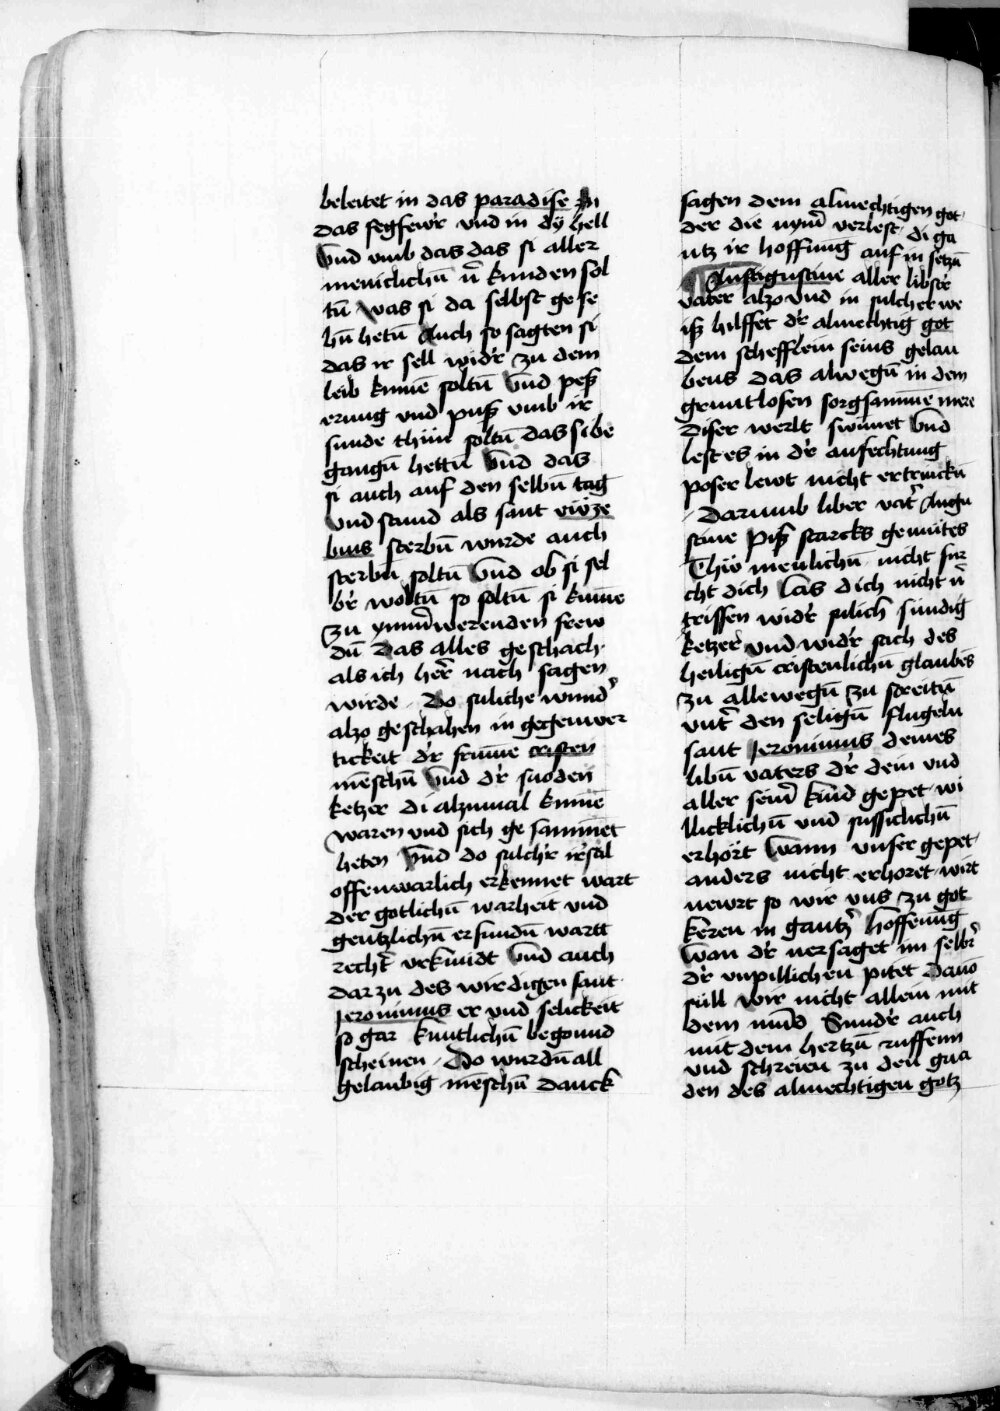 beleitet in das paradise In
das fegfewr vnd in dÿ hell
Vnd vmb das das si aller
meniclichū v̄ kunden sol
tū was si da selbst gese
hū hetū Auch so sagten si
das ir sell widʼr zu dem
leib kumē soltū Vnd peß
erung vnd puß vmb ir
sunde thün soltū das si be
gangū hettū Vnd das
si auch auf den selbū tag
Vnd stund als sant
bius sterbū wurde auch
sterbū soltū Vnd ob si sel
bʼr woltū so soltū si kumē
zu ymmʼwerenden frew
dū Das alles geschach
als ich herʼ nach sagen
wirde Do suliche wundʼ
alzo geschahen in gegenwer
tickeit dʼr frume cristen
mēschū Vnd dʼr snoden
ketzer di alzumal kumē
waren vnd sich gesammēt
heten Vnd do sulchʼr irsal
offenwarlich erkennet wart
der gotlichū warheit vnd
gentzlichū erfundū wartt
rechtʼ vrkundt Vnd auch
dar zu des wirdigen sant
Jeronimus er vnd selickeit
so gar kuntlichū begound
scheinen Do wurdū all
gelaubig mēschū danck
sagen dem almechtigen got
der die nymʼ verlest di ga
ntz ir hoffung auf in setzū
Augustine aller libstʼr
vater alzo vnd in sulcher we
iß hilffet dʼr almechtig got
dem schefflein seins gelau
bens das alwegū in dem
gruntlosen sorgsamme mere
diser werlt swimet Vnd
lest es in dʼr anfechtung
poser lewt nicht ertrinckū
Darumb liber vatʼ Augu
stine Piß starcks gemütes
Thü menlichū nicht fur
cht dich Las dich nicht v̄
triffen widʼr sulich sündig
ketzerʼ vnd widʼr sach des
heiligū cristenlichū glaubēs
zu allewegū zu streitū
vntʼ den seligū flugeln
sant Jeronimus deines
libū vaters dʼr dein vnd
aller seinʼ kind gepet wi
llicklichū vnd
erhört Wann vnser gepet
anders nicht erhoret wirt
newrt so wir vns zu got
keren in gantzʼ hoffenung
Wan dʼr versaget im selbrʼ
dʼr vnpillichen pitet Dauō
süll wir nicht allein mit
dem mūd Sundʼr auch
mit dem hertzū ruffenn
vnd schreien zu den gna
den des almechtigen gotz